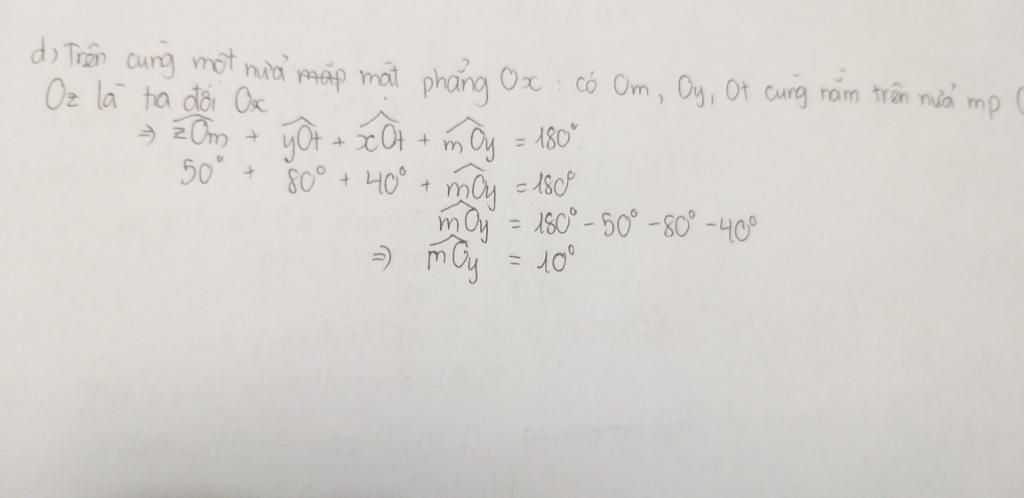 d) Trên cùng một nửa mặp mặt phẳng Ox : có Om, Oy, Ot cùng nằm trên nửa mp
Oz là tia đối Ox
⇒ zOm + yOt + xOt + mOy = 180°
50° + 80° + 40° + mOy = 180°
mOy = 180° - 50° - 80° - 40°
⇒ mOy = 10°